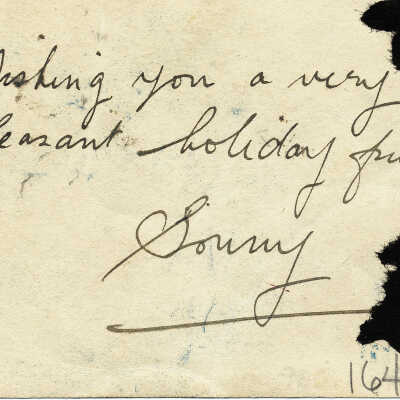 ishing you a very
easant holiday fr
Sonny
164